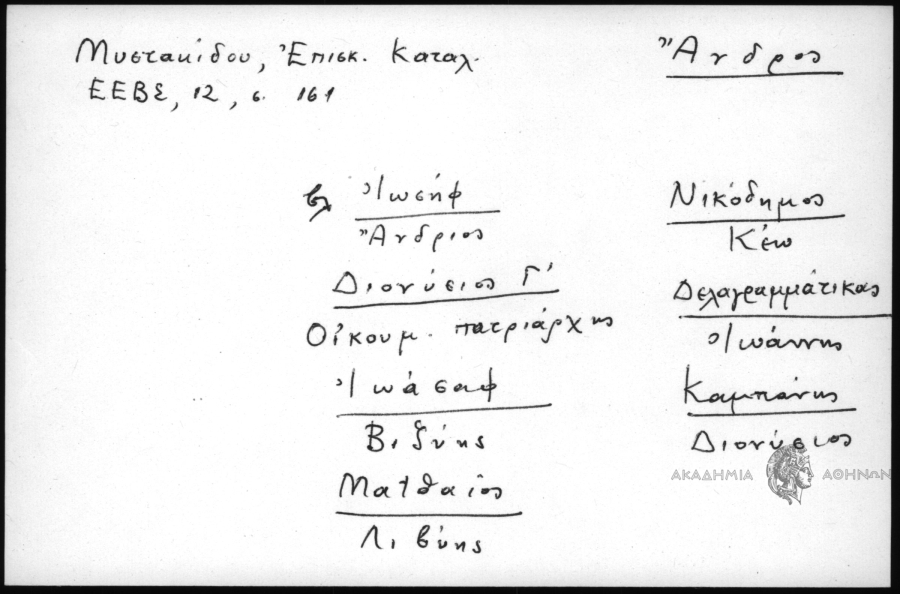 Μυστακίδου, Ἐπισκ. Καταλ.
ΕΕΒΣ, 12, σ. 161
Ἄνδρος
βλ Ἰωσήφ
Ἄνδριος
Διονύσιος Γ΄
Οἰκουμ. πατριάρχης
Ἰωάσαφ
Βιζύης
Ματθαῖος
Λιβύης
Νικόδημος
Κέω
Δελαγραμμάτικας
Ἰωάννης
Καμπάνης
Διονύσιος
ΑΚΑΔΗΜΙΑ ΑΘΗΝΩΝ